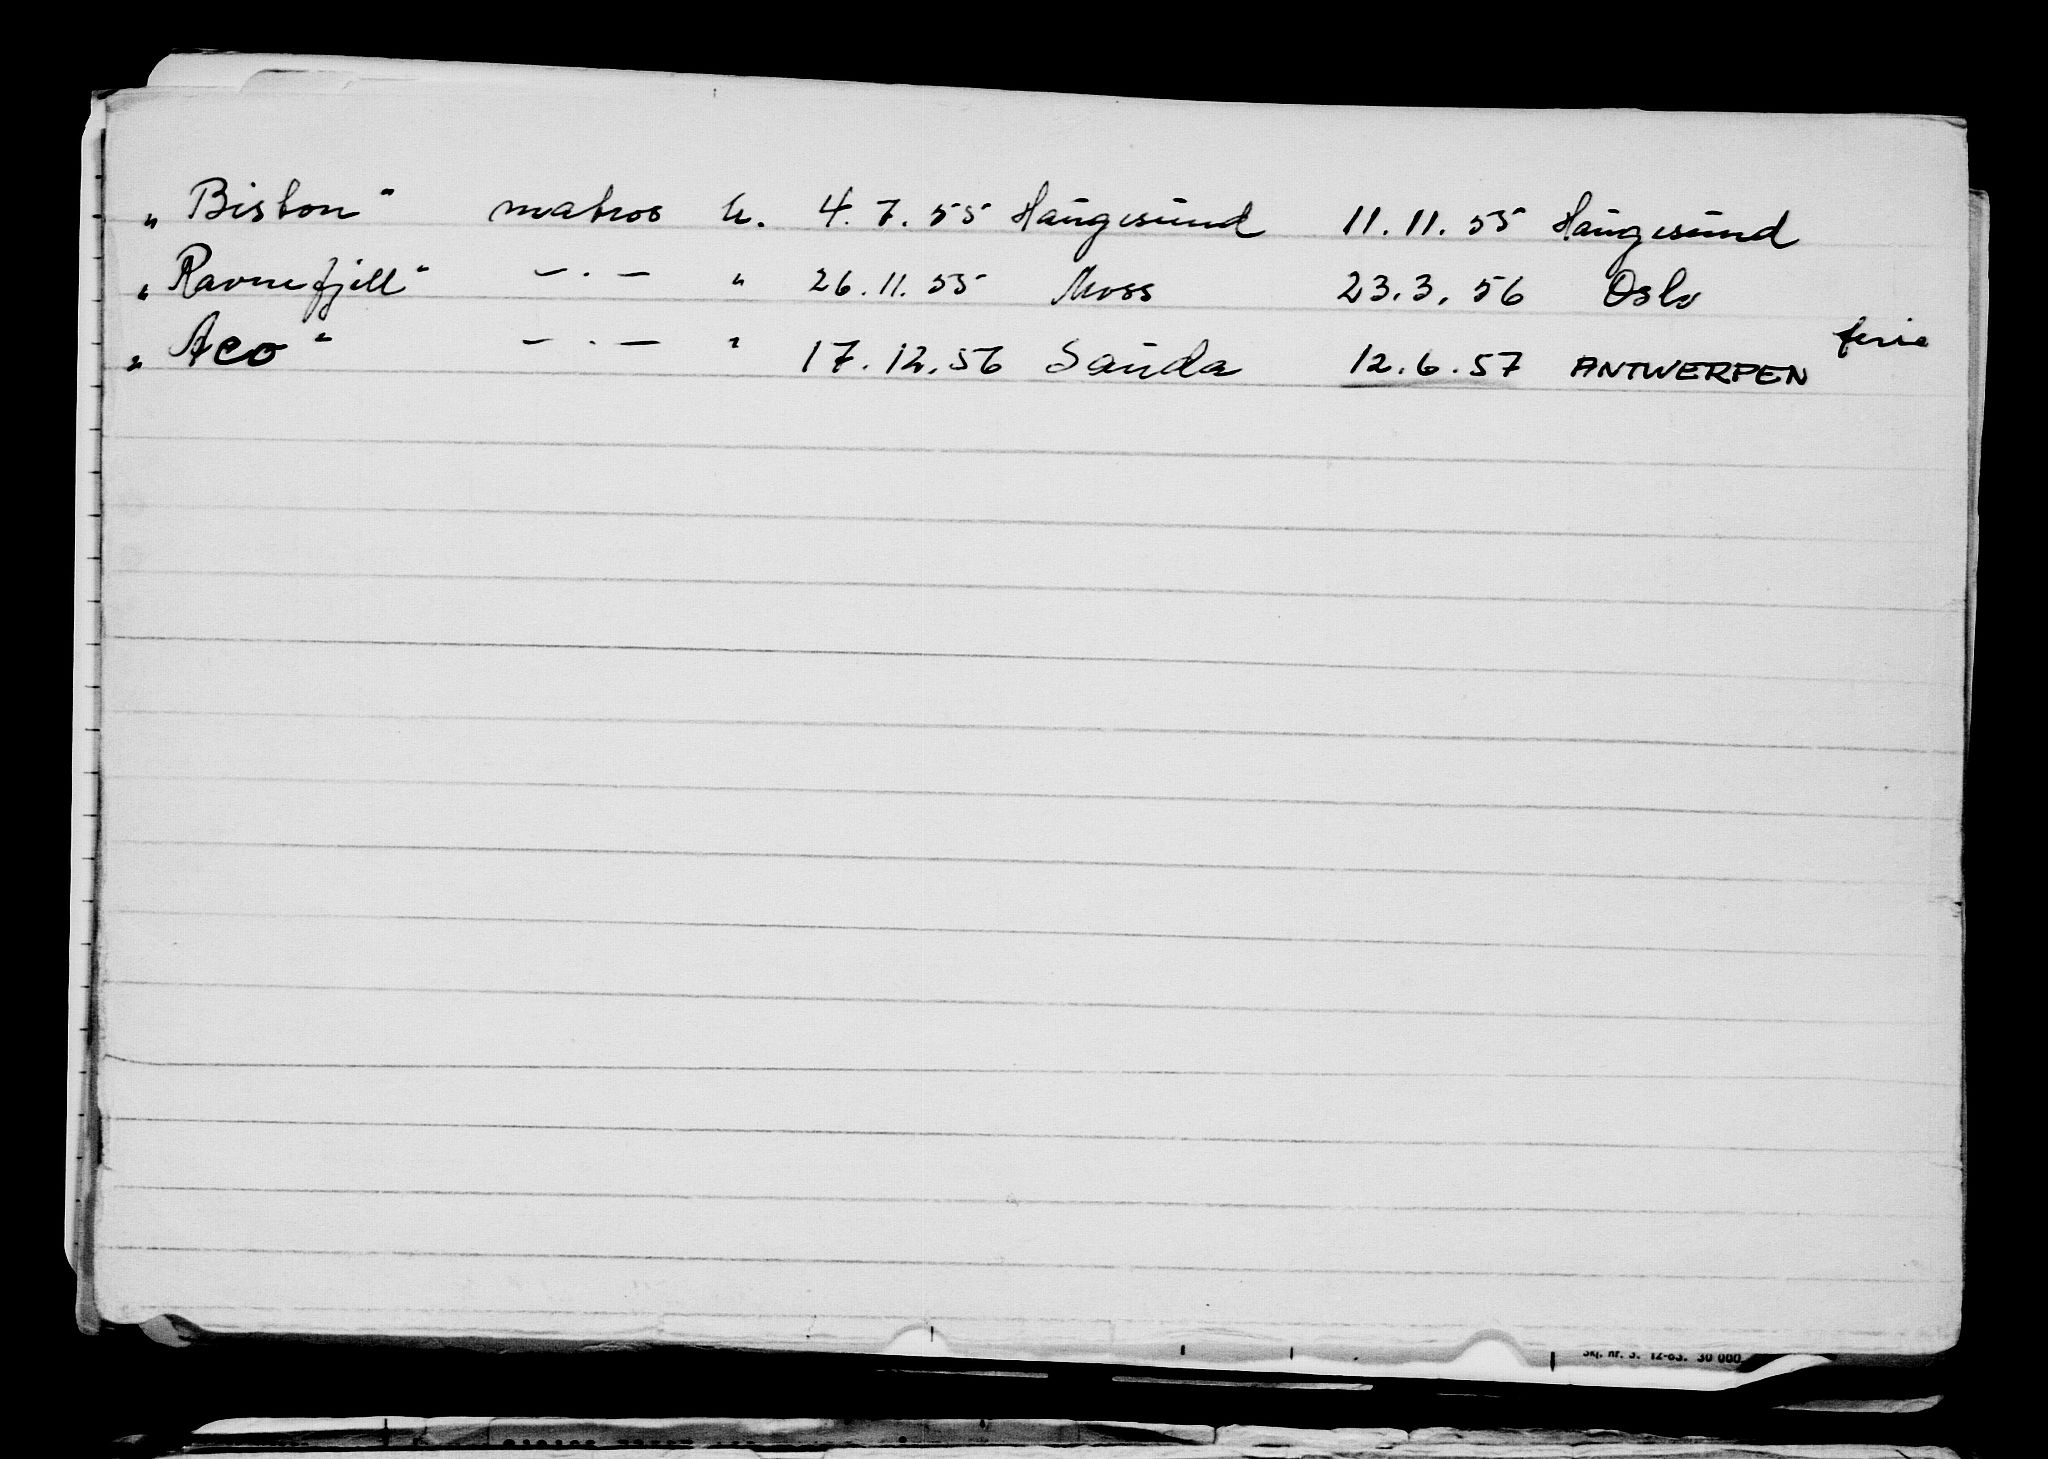 „ Biston " matros u. 4.7.55 Haugesund 11.11.55 Haugesund
„ Ravnefjell " — . — " 26.11.55 Moss 23.3.56 Oslo
„ Aco " — . — " 17.12.56 Sauda 12.6.57 ANTWERPEN ferie
Skj. nr. 3. 12-63. 30 000